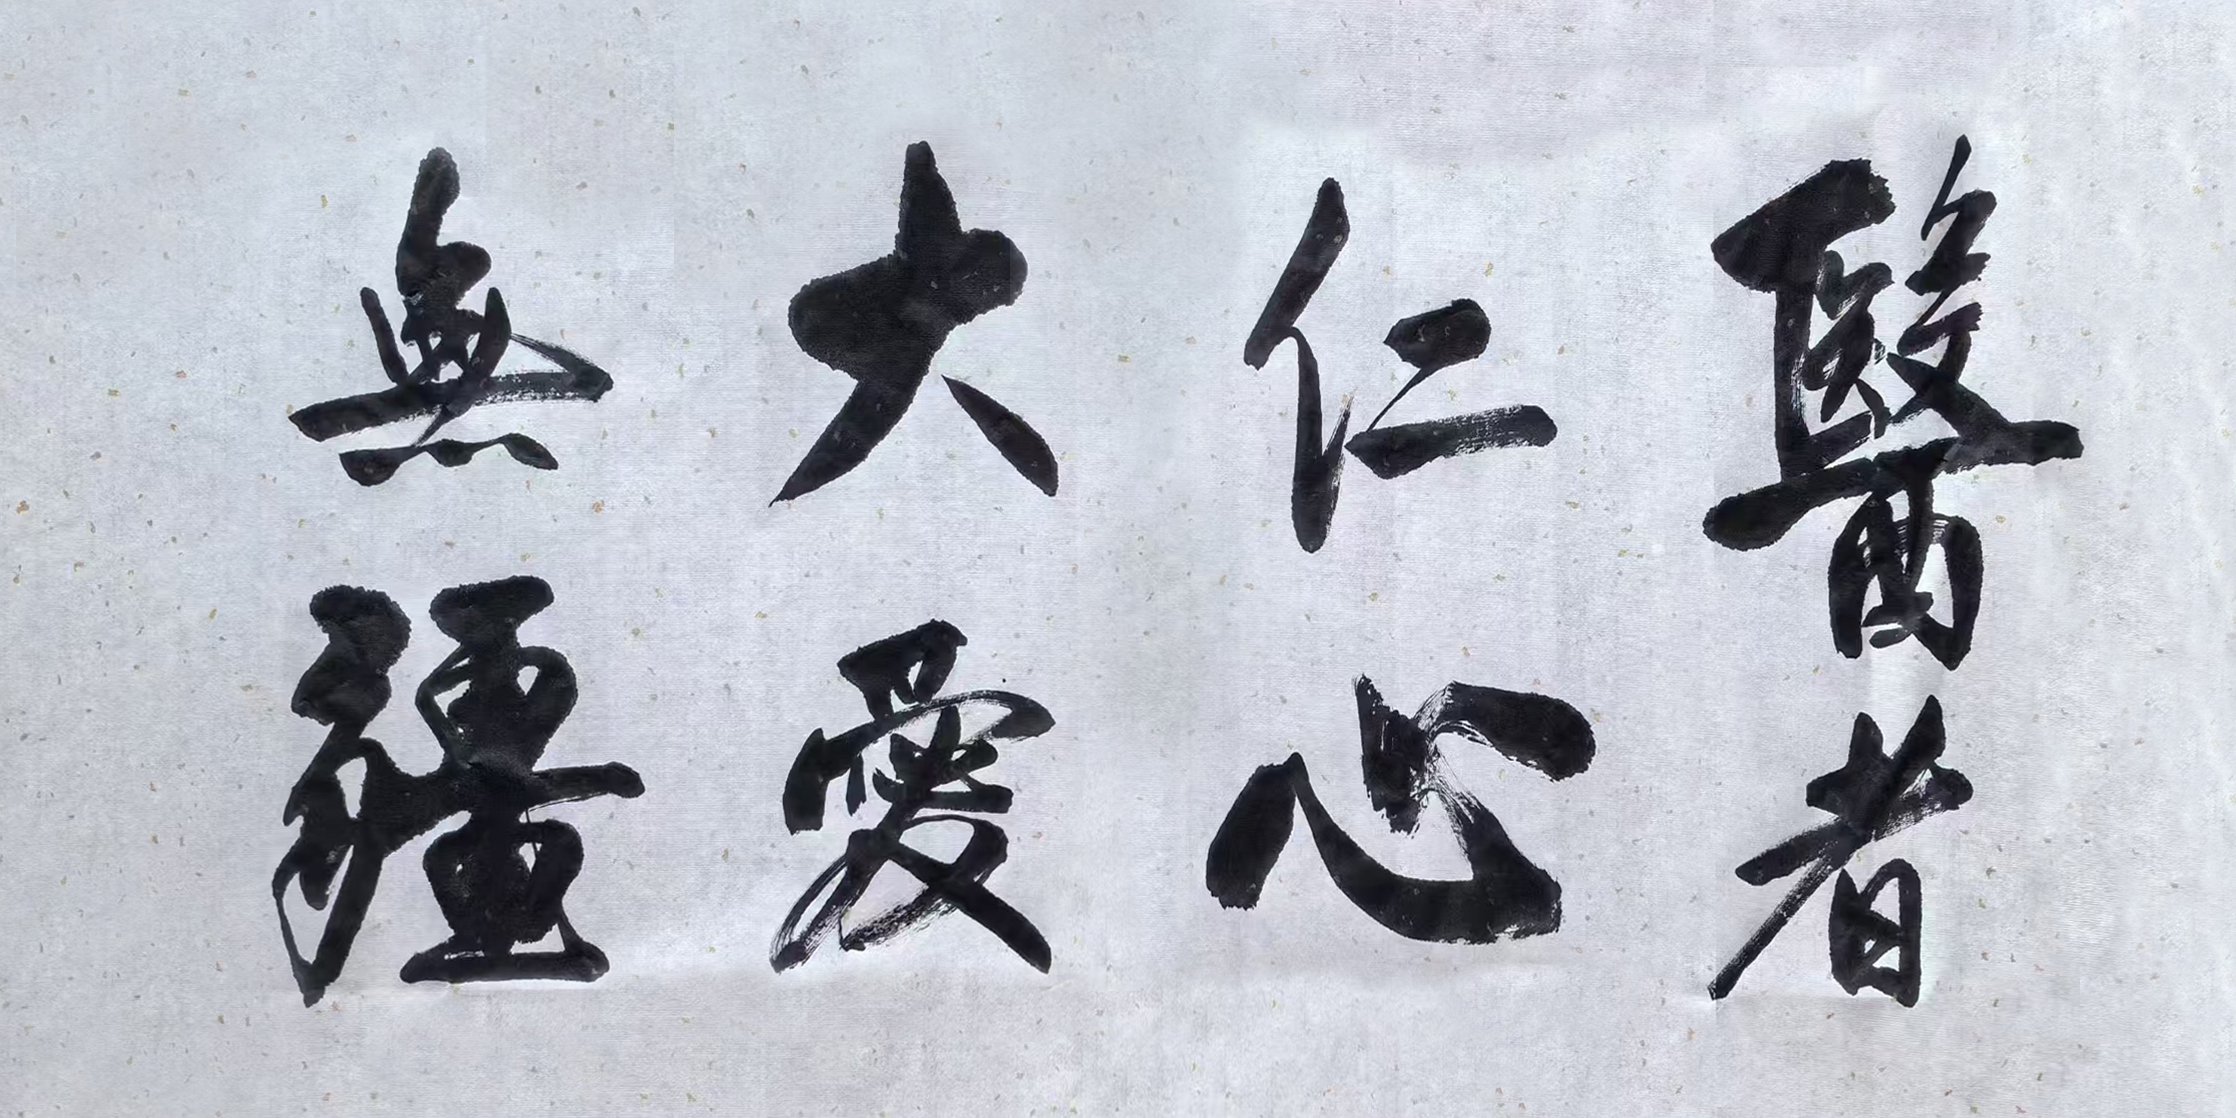 醫者
仁心
大愛
無疆